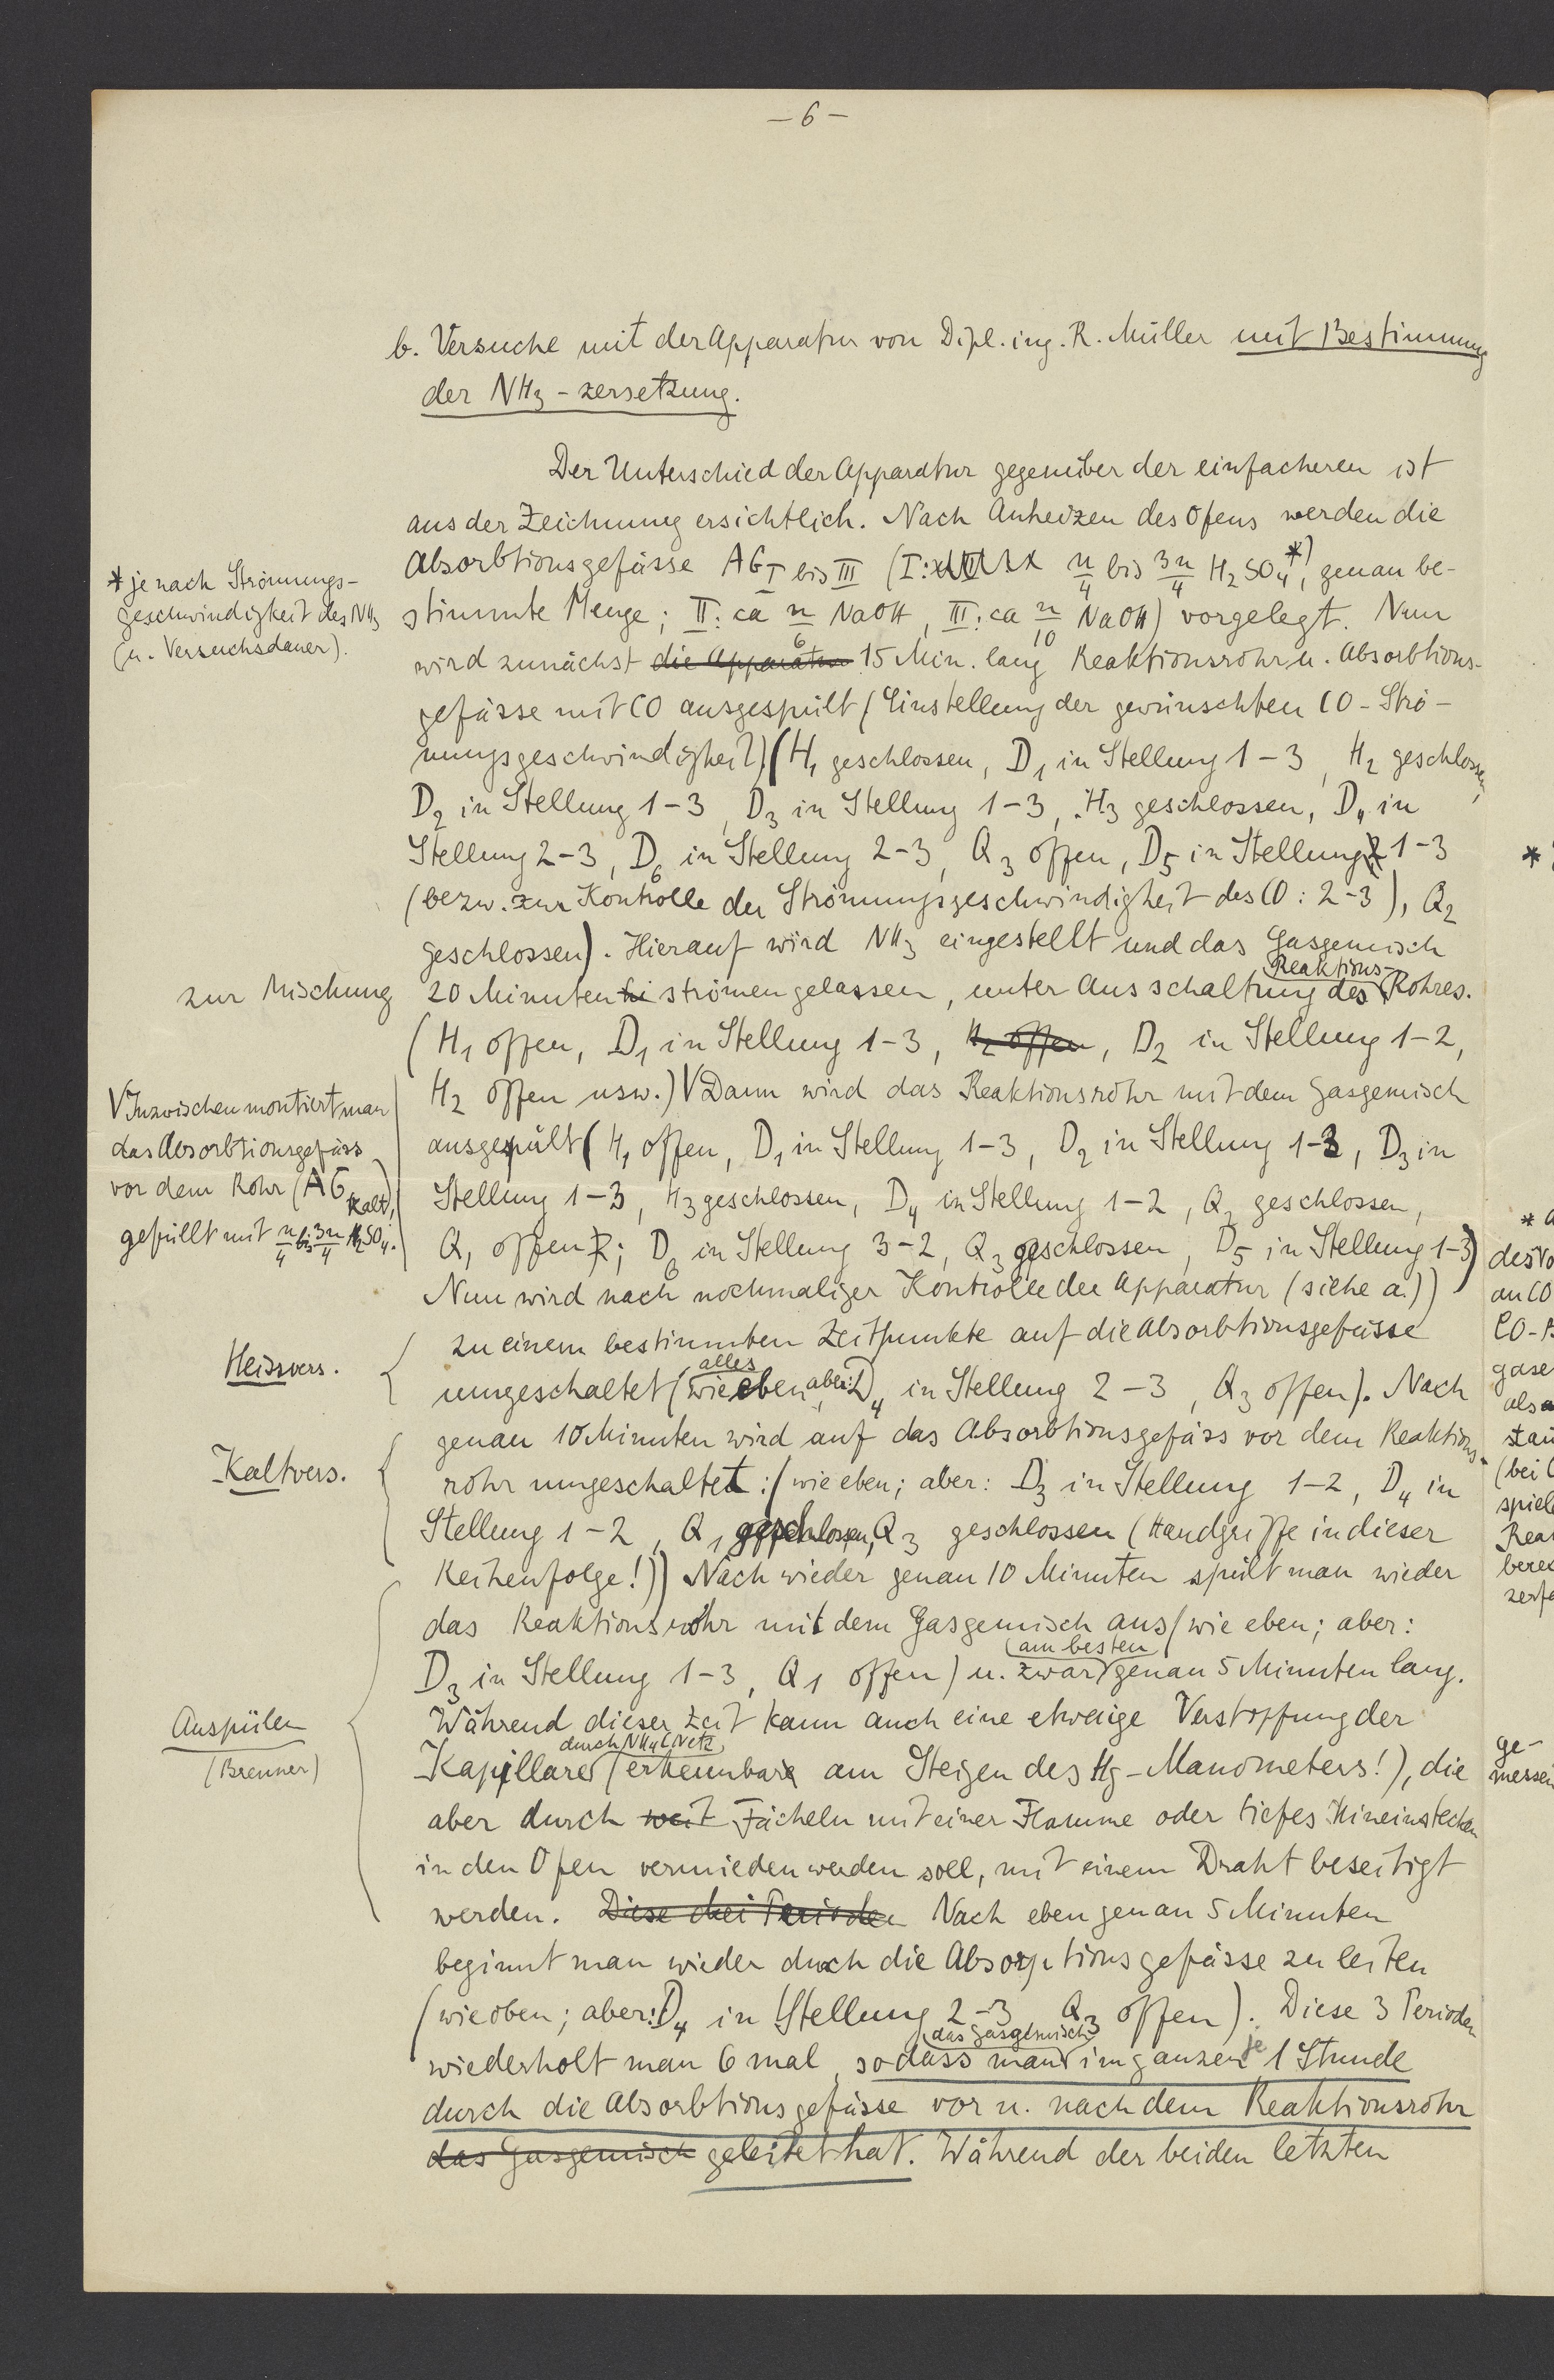 – 6 –
b. Versuche mit der Apparatur von Dipl. ing. R. Müller mit Bestimmung
der NH3 - zersetzung.
Der Unterschied der Apparatur gegenüber der einfacheren ist
aus der Zeichnung ersichtlich. Nach Anheizen des Ofens werden die
Absorbtionsgefässe AG I bis III (I: n/4 bis 3n/4 H2SO4*), genau be-
stimmte Menge; II: ca n/6 NaOH, III: ca n/10 NaOH) vorgelegt. Nun
wird zunächst die Apparatur 15 Min. lang Reaktionsrohr u. Absorbtions-
gefässe mit CO ausgespült (Einstellung der gewünschten CO - Strö-
mungsgeschwindigkeit) (H1 geschlossen, D1 in Stellung 1-3, H2 geschlossen,
D2 in Stellung 1-3, D3 in Stellung 1-3, H3 geschlossen, D4 in
Stellung 2-3, D6 in Stellung 2-3, Q3 offen, D5 in Stellung 1-3
(bezw. zur Kontrolle der Strömungsgeschwindigkeit des CO: 2-3), Q2
geschlossen). Hierauf wird NH3 eingestellt und das Gasgemisch
20 Minuten hi strömen gelassen, unter Ausschaltung des Reaktions-Rohres.
(H1 offen, D1 in Stellung 1-3, H2 offen, D2 in Stellung 1-2,
H2 offen usw.) V Dann wird das Reaktionsrohr mit dem Gasgemisch
ausgespült (H1 offen, D1 in Stellung 1-3, D2 in Stellung 1-3, D3 in
Stellung 1-3, H3 geschlossen, D4 in Stellung 1-2, Q2 geschlossen,
Q1 offen; D6 in Stellung 3-2, Q3 geschlossen, D5 in Stellung 1-3)
Nun wird nach nochmaliger Kontrolle der Apparatur (siehe a.))
zu einem bestimmten Zeitpunkte auf die Absorbtionsgefässe
umgeschaltet (alles wie eben, aber: D4 in Stellung 2-3, Q3 offen). Nach
genau 10 Minuten wird auf das Absorbtionsgefäss vor dem Reaktions-
rohr umgeschaltet: (wie eben; aber: D3 in Stellung 1-2, D4 in
Stellung 1-2, Q1 geschlossen, Q3 geschlossen (Handgriffe in dieser
Reihenfolge!)) Nach wieder genau 10 Minuten spült man wieder
das Reaktionsrohr mit dem Gasgemisch aus (wie eben; aber:
D3 in Stellung 1-3, Q1 offen) u. zwar am besten genau 5 Minuten lang.
Während dieser Zeit kann auch eine etwaige Verstopfung der
Kapillare durch NH4Cl Netz (erkennbar am Steigen des Hg - Manometers!), die
aber durch weit Fächeln mit einer Flamme oder tiefes Hineinstecken
in den Ofen vermieden werden soll, mit einem Draht beseitigt
werden. Diese drei Perioden Nach eben genau 5 Minuten
beginnt man wieder durch die Absorptionsgefässe zu leiten
(wie oben; aber: D4 in Stellung 2-3 Q3 offen). Diese 3 Perioden
wiederholt man 6 mal, sodass man das Gasgemisch im ganzen je 1 Stunde
durch die Absorbtionsgefässe vor u. nach dem Reaktionsrohr
das Gasgemisch geleitet hat. Während der beiden letzten
* je nach Strömungs-
geschwindigkeit des NH3
(u. Versuchsdauer).
zur Mischung
V Inzwischen montiert man
das Absorbtionsgefäss
vor dem Rohr (AG kalt),
gefüllt mit n/4 bis 3n/4 H2SO4.
Heissvers.
Kaltvers.
Auspülen
(Brenner)
*
des Vo
an CO
CO-
gase
als
stan
(bei
spiel
Rea
bere
zerfa
ge-
messen